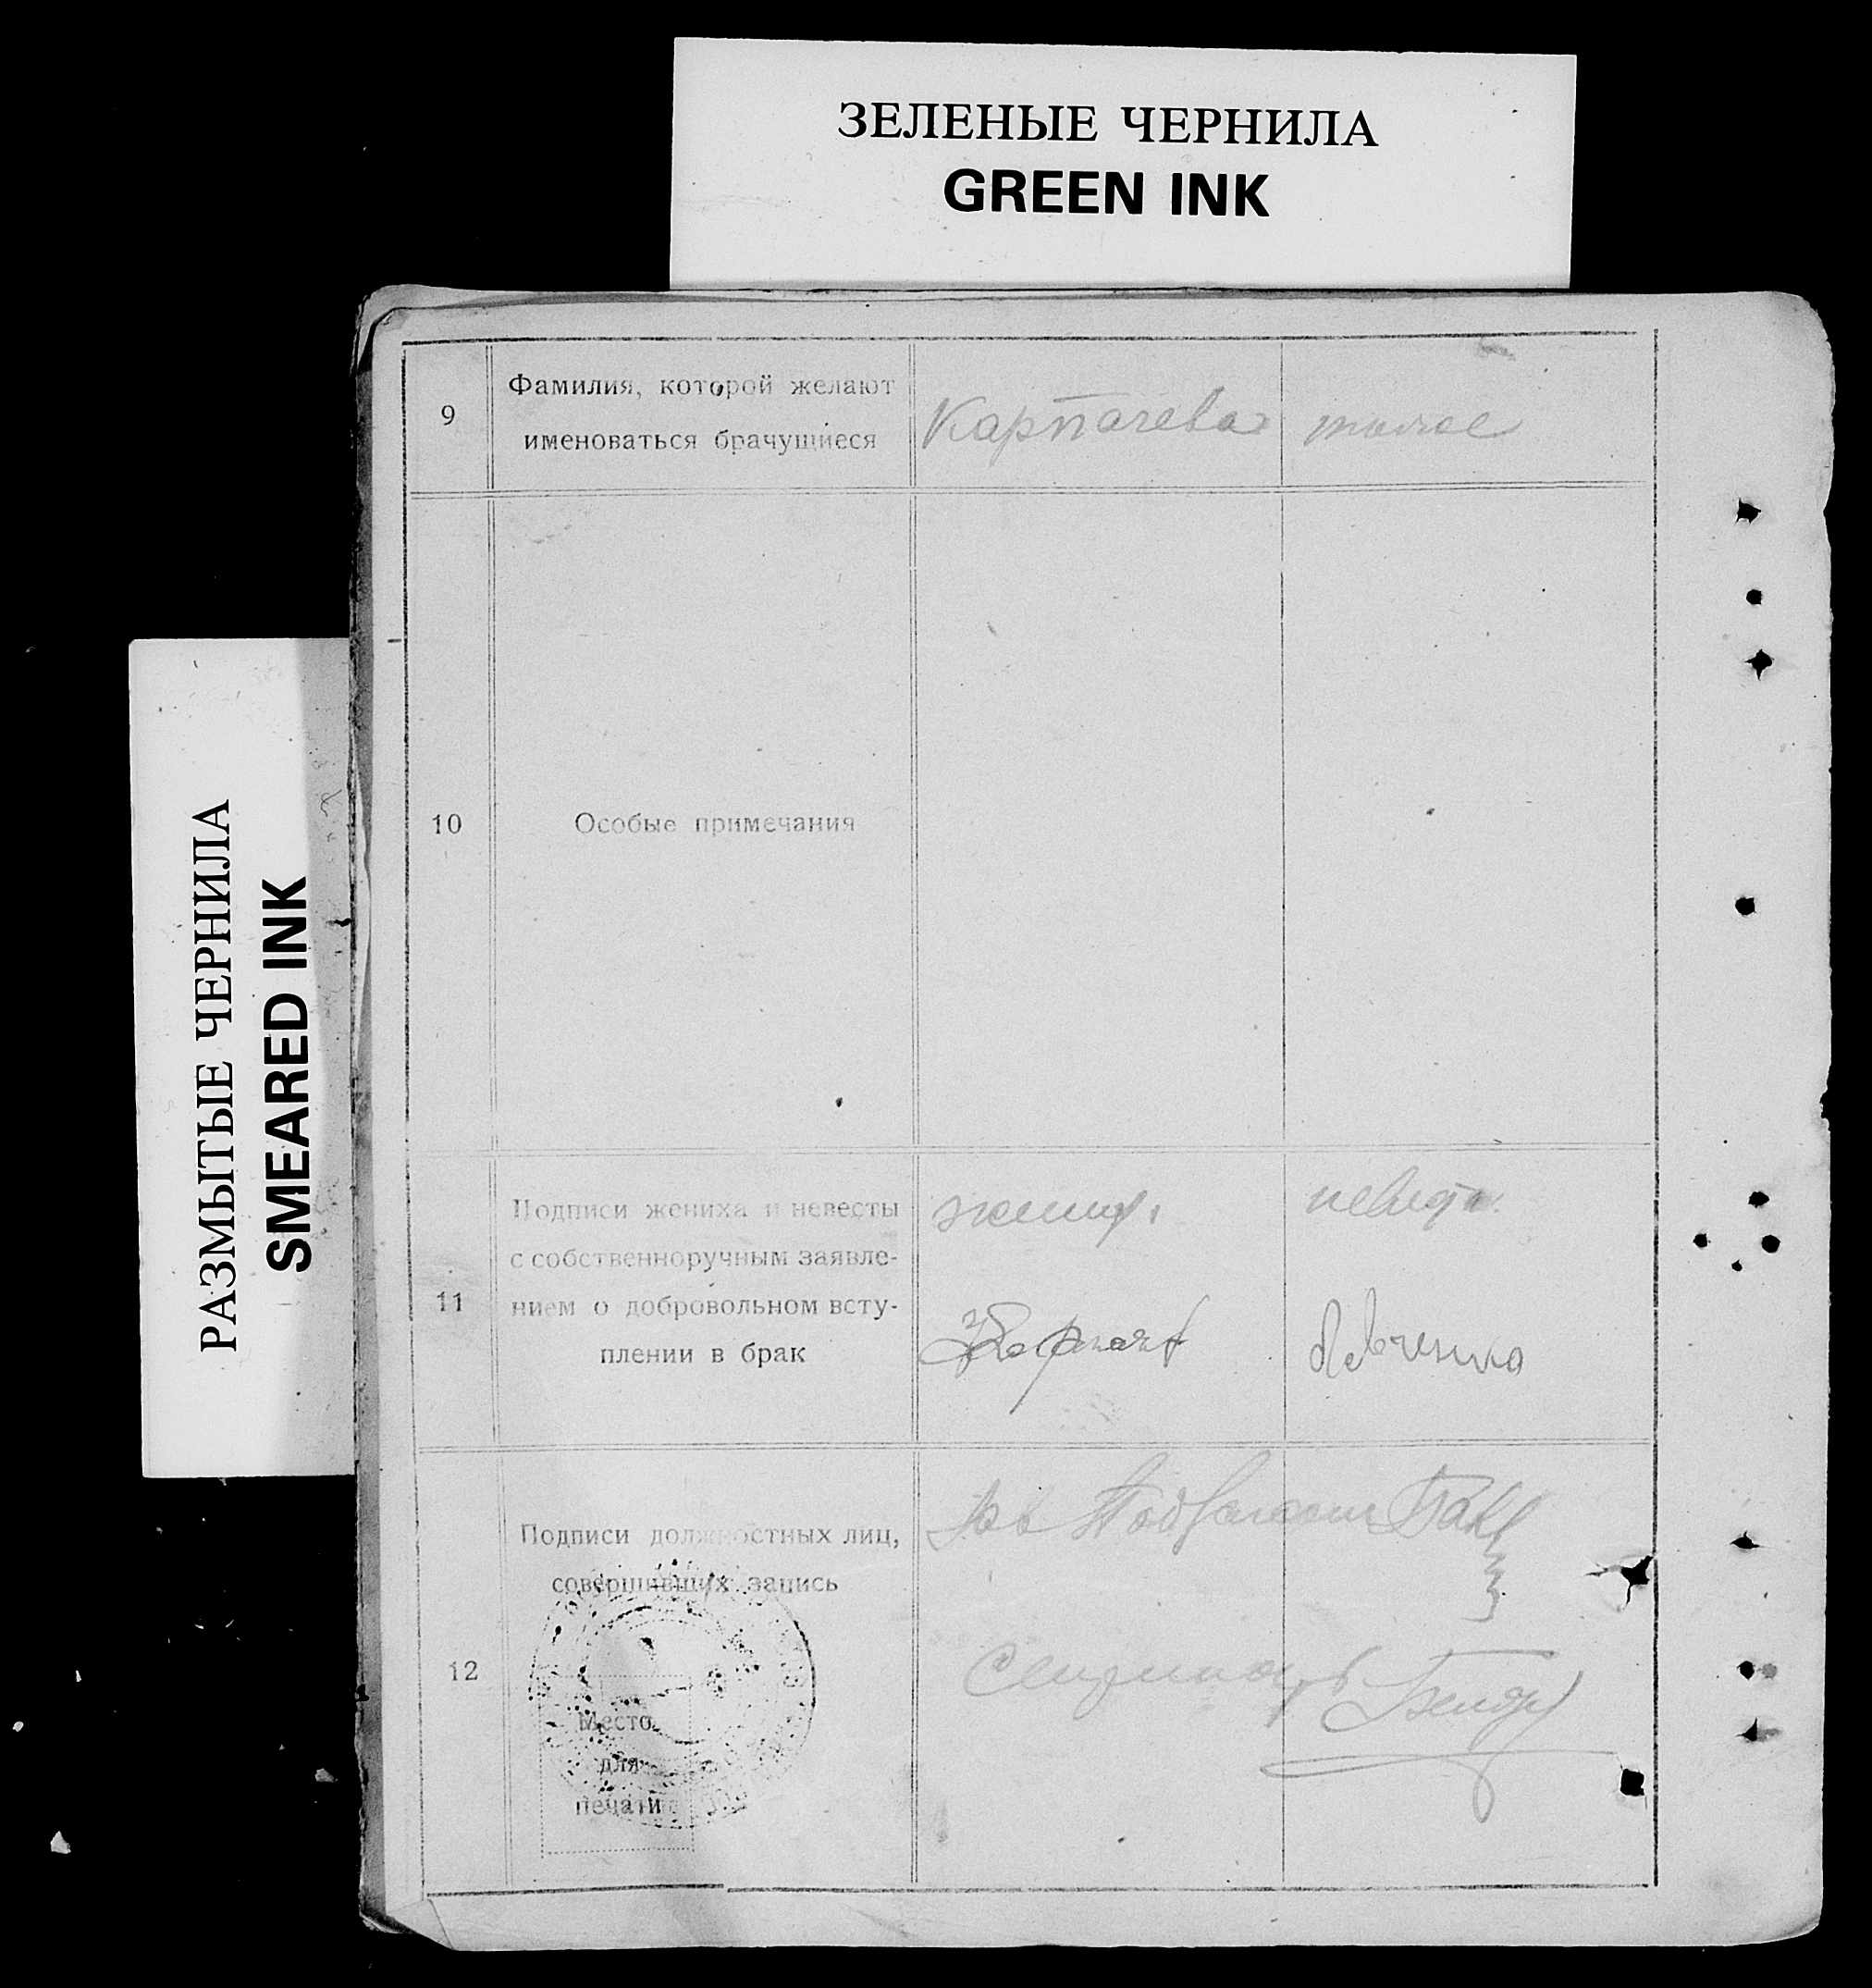 ЗЕЛЕНЫЕ ЧЕРНИЛА
GREEN INK
РАЗМЫТЫЕ ЧЕРНИЛА
SMEARED INK
9
Фамилия, которой желают
именоваться брачущиеся
Карпачева
тоже
10
Особые примечания
11
Подписи жениха и невесты
с собственноручным заявле-
нием о добровольном всту-
плении в брак
жених
невеста
Левченко
12
Подписи должностных лиц,
совершивших запись
Место
для
печати